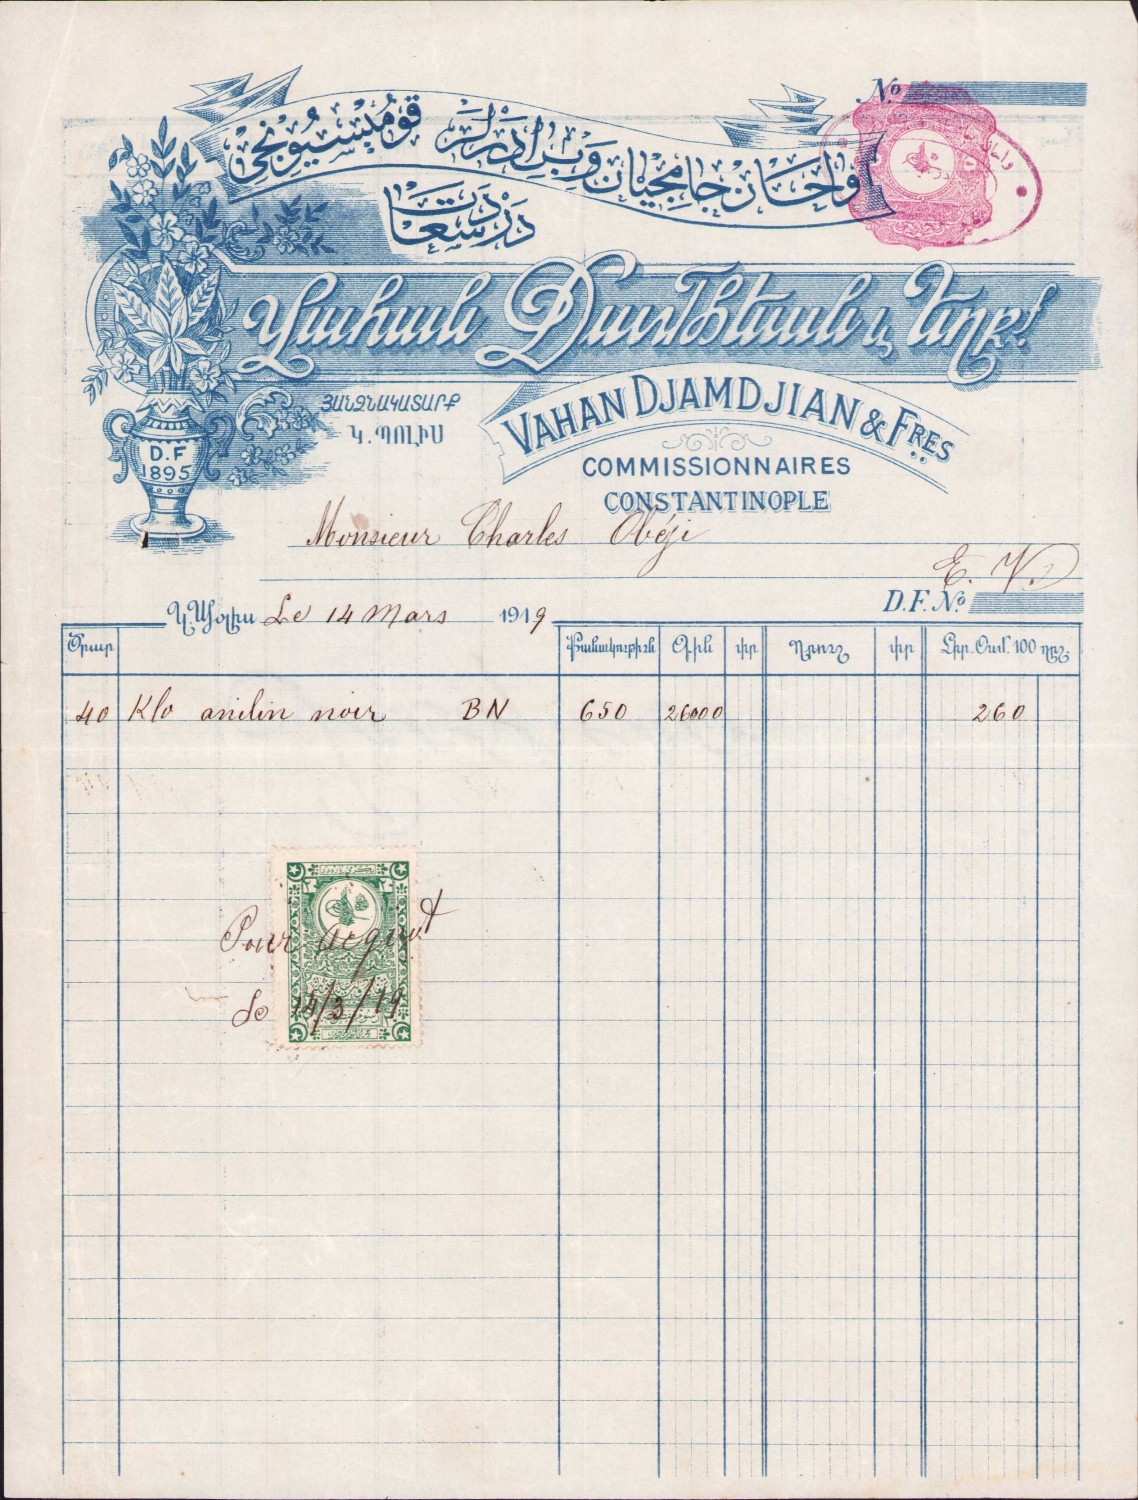 No
واحان جامجیان و برادرلر قومیسیونجی
درسعادت
Վահան Ճամճեան և Եղբ.
ՅԱՆՁՆԱԿԱՏԱՐՔ
Կ. ՊՈԼԻՍ
VAHAN DJAMDJIAN & FRES
COMMISSIONNAIRES
CONSTANTINOPLE
D.F
1895
Monsieur Charles Obéji
E. V.
D.F. No
Կ. Պօլիս Le 14 Mars 1919
Ծրար Քանակութիւն Գին փր Ղրուշ փր Լիր. Օսմ. 100 ղրշ.
40 Klo anilin noir BN 650 26000 260
Pour acquit
Le 14/3/19